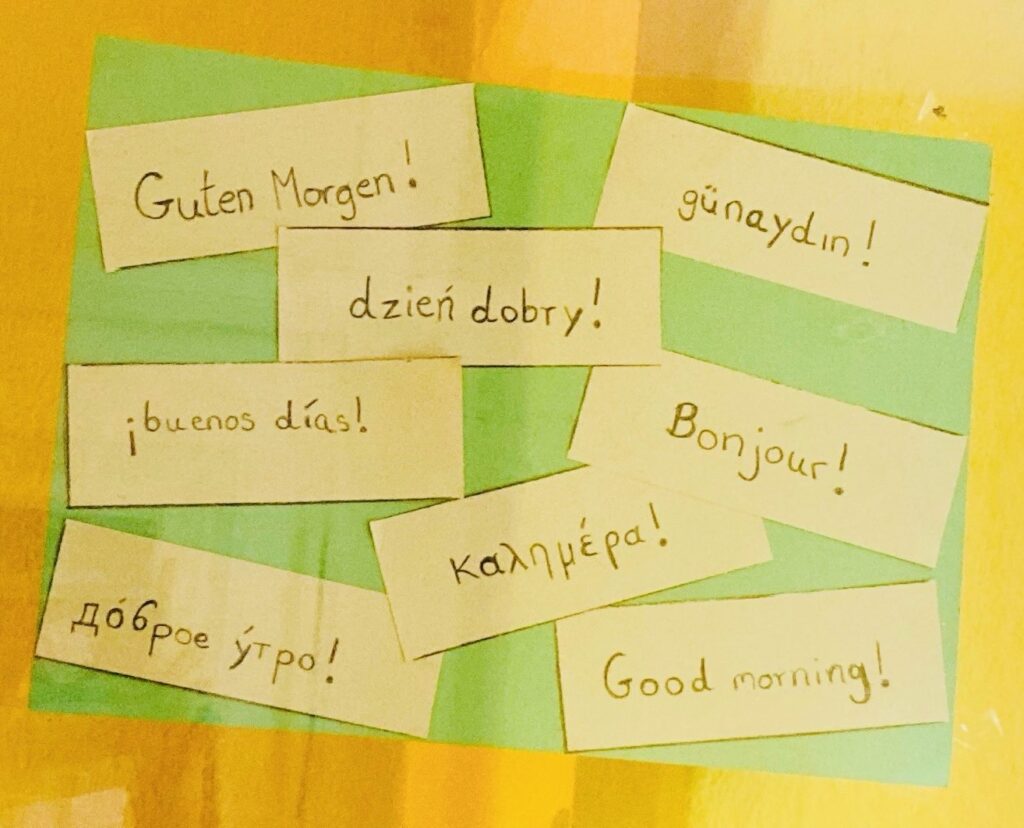 Guten Morgen!
günaydın!
dzień dobry!
¡buenos días!
Bonjour!
καλημέρα!
дóброе ýтро!
Good morning!